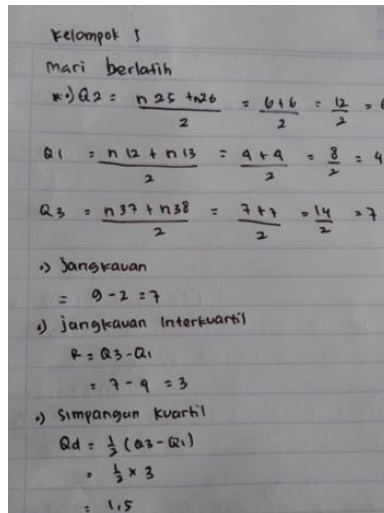 Kelompok 5
Mari berlatih
•) Q2 = n25 + n26 / 2 = 6+6 / 2 = 12 / 2 = 6
Q1 = n12 + n13 / 2 = 4+4 / 2 = 8 / 2 = 4
Q3 = n37 + n38 / 2 = 7+7 / 2 = 14 / 2 = 7
•) Jangkauan
= 9 - 2 = 7
•) jangkauan Interkuartil
R = Q3 - Q1
= 7 - 4 = 3
•) Simpangan kuartil
Qd = 1/2 (Q3 - Q1)
= 1/2 x 3
= 1,5